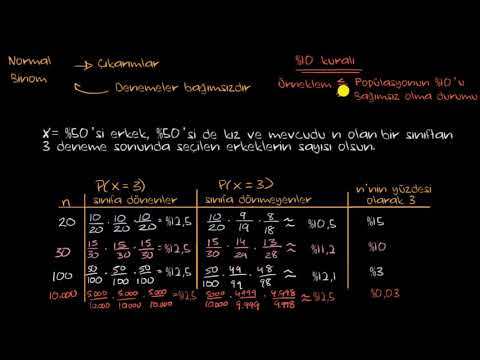 Normal → Çıkarımlar
Binom
Denemeler bağımsızdır
%10 kuralı
Örneklem ≤ Popülasyonun %10'u
Bağımsız olma durumu
X= %50'si erkek, %50'si de kız ve mevcudu n olan bir sınıftan
3 deneme sonunda seçilen erkeklerin sayısı olsun.
P(X=3) P(X=3) n'nin yüzdesi
n sınıfa dönenler sınıfa dönmeyenler olarak 3
20 10/20 · 10/20 · 10/20 = %12,5 10/20 · 9/19 · 8/18 ≈ %10,5 %15
30 15/30 · 15/30 · 15/30 = %12,5 15/30 · 14/29 · 13/28 ≈ %11,2 %10
100 50/100 · 50/100 · 50/100 = %12,5 50/100 · 49/99 · 48/98 ≈ %12,1 %3
10.000 5000/10.000 · 5000/10.000 · 5000/10.000 = %12,5 5000/10.000 · 4999/9.999 · 4.998/9.998 ≈ %12.5 %0,03